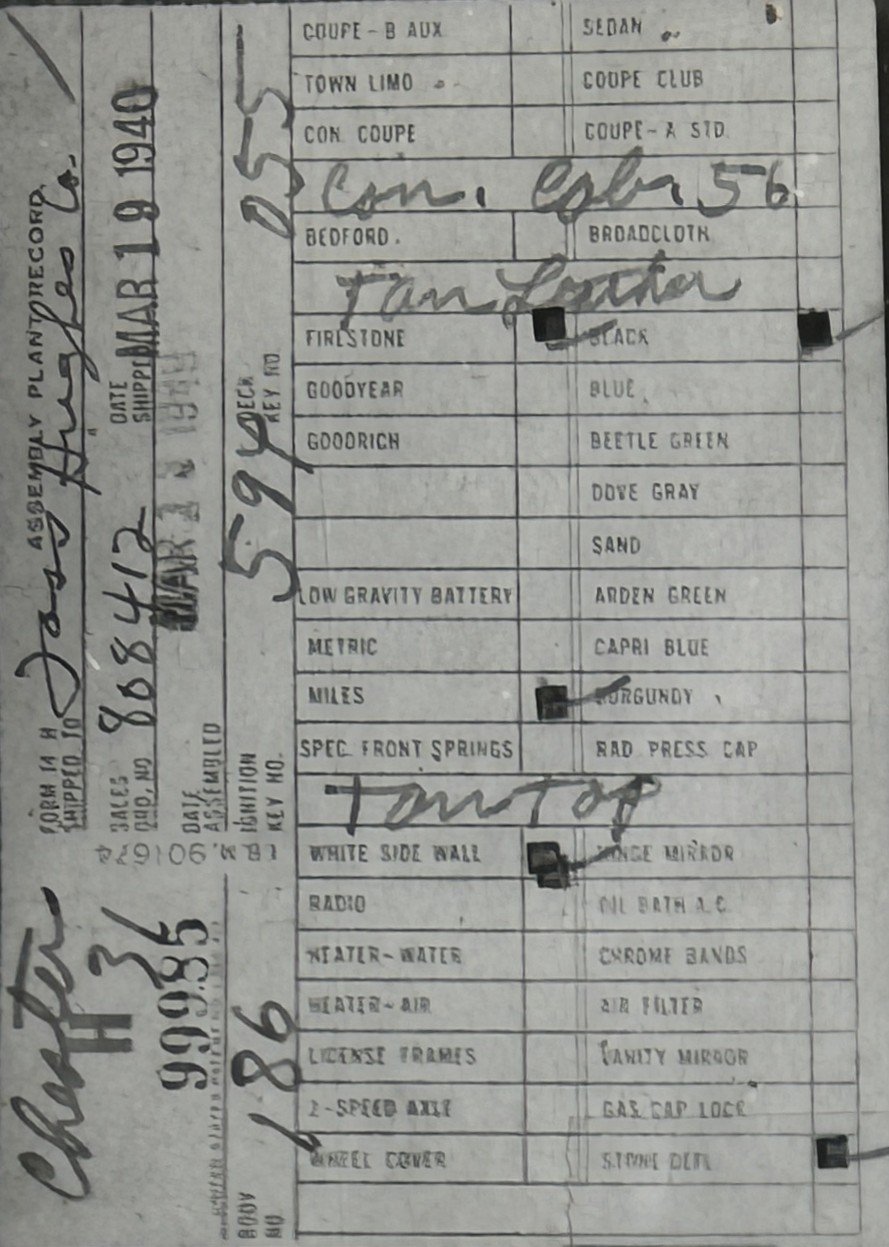 FORM 14 H ASSEMBLY PLANT RECORD
SHIPPED TO Jass Hughes Co.
SALES ORD, NO 808412 DATE SHIPPED MAR 19 1940
DATE ASSEMBLED MAR 1940
IGNITION KEY NO. 594 DECK KEY NO. 055
Chester
H 36
99985
BODY NO 186
COUPE - B AUX SEDAN
TOWN LIMO COUPE CLUB
CON COUPE COUPE - A STD
Con. 56
BEDFORD. BROADCLOTH
Tan Leather
FIRESTONE BLACK
GOODYEAR BLUE
GOODRICH BEETLE GREEN
DOVE GRAY
SAND
LOW GRAVITY BATTERY ARDEN GREEN
METRIC CAPRI BLUE
MILES BURGUNDY
SPEC FRONT SPRINGS RAD PRESS CAP
Tan Top
WHITE SIDE WALL HINGE MIRROR
RADIO OIL BATH A.C.
HEATER-WATER CHROME BANDS
HEATER-AIR AIR FILTER
LICENSE FRAMES VANITY MIRROR
2-SPEED AXLE GAS CAP LOCK
WHEEL COVER STONE DEFL